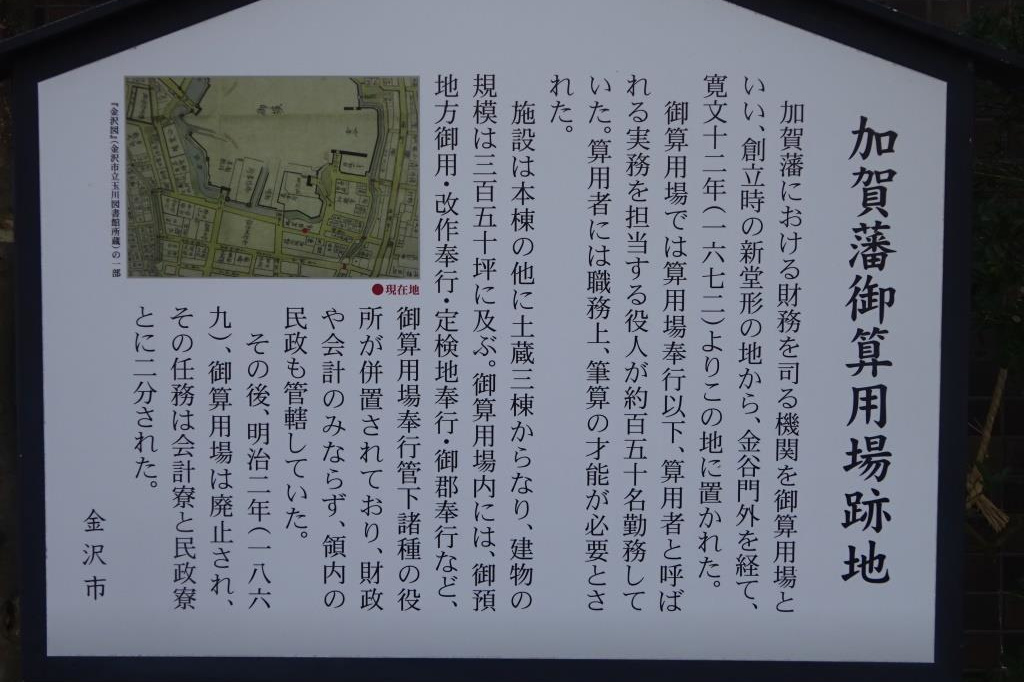 加賀藩御算用場跡地
加賀藩における財務を司る機関を御算用場と
いい、創立時の新堂形の地から、金谷門外を経て、
寛文十二年(一六七二)よりこの地に置かれた。
御算用場では算用場奉行以下、算用者と呼ば
れる実務を担当する役人が約百五十名勤務して
いた。算用者には職務上、筆算の才能が必要とさ
れた。
施設は本棟の他に土蔵三棟からなり、建物の
規模は三百五十坪に及ぶ。御算用場内には、御預
地方御用・改作奉行・定検地奉行・御郡奉行など、
御算用場奉行管下諸種の役
所が併置されており、財政
や会計のみならず、領内の
民政も管轄していた。
その後、明治二年(一八六
九)、御算用場は廃止され、
その任務は会計寮と民政寮
とに二分された。
金沢市
●現在地
『金沢図』(金沢市立玉川図書館所蔵)の一部